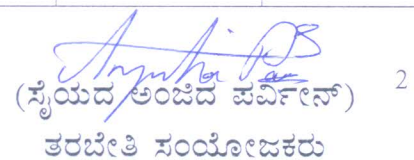 (ಸೈಯದ ಅಂಜಿದ ಪರ್ವೀನ್) 2
ತರಬೇತಿ ಸಂಯೋಜಕರು